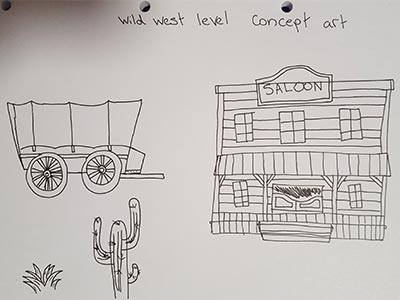 wild west level concept art
SALOON